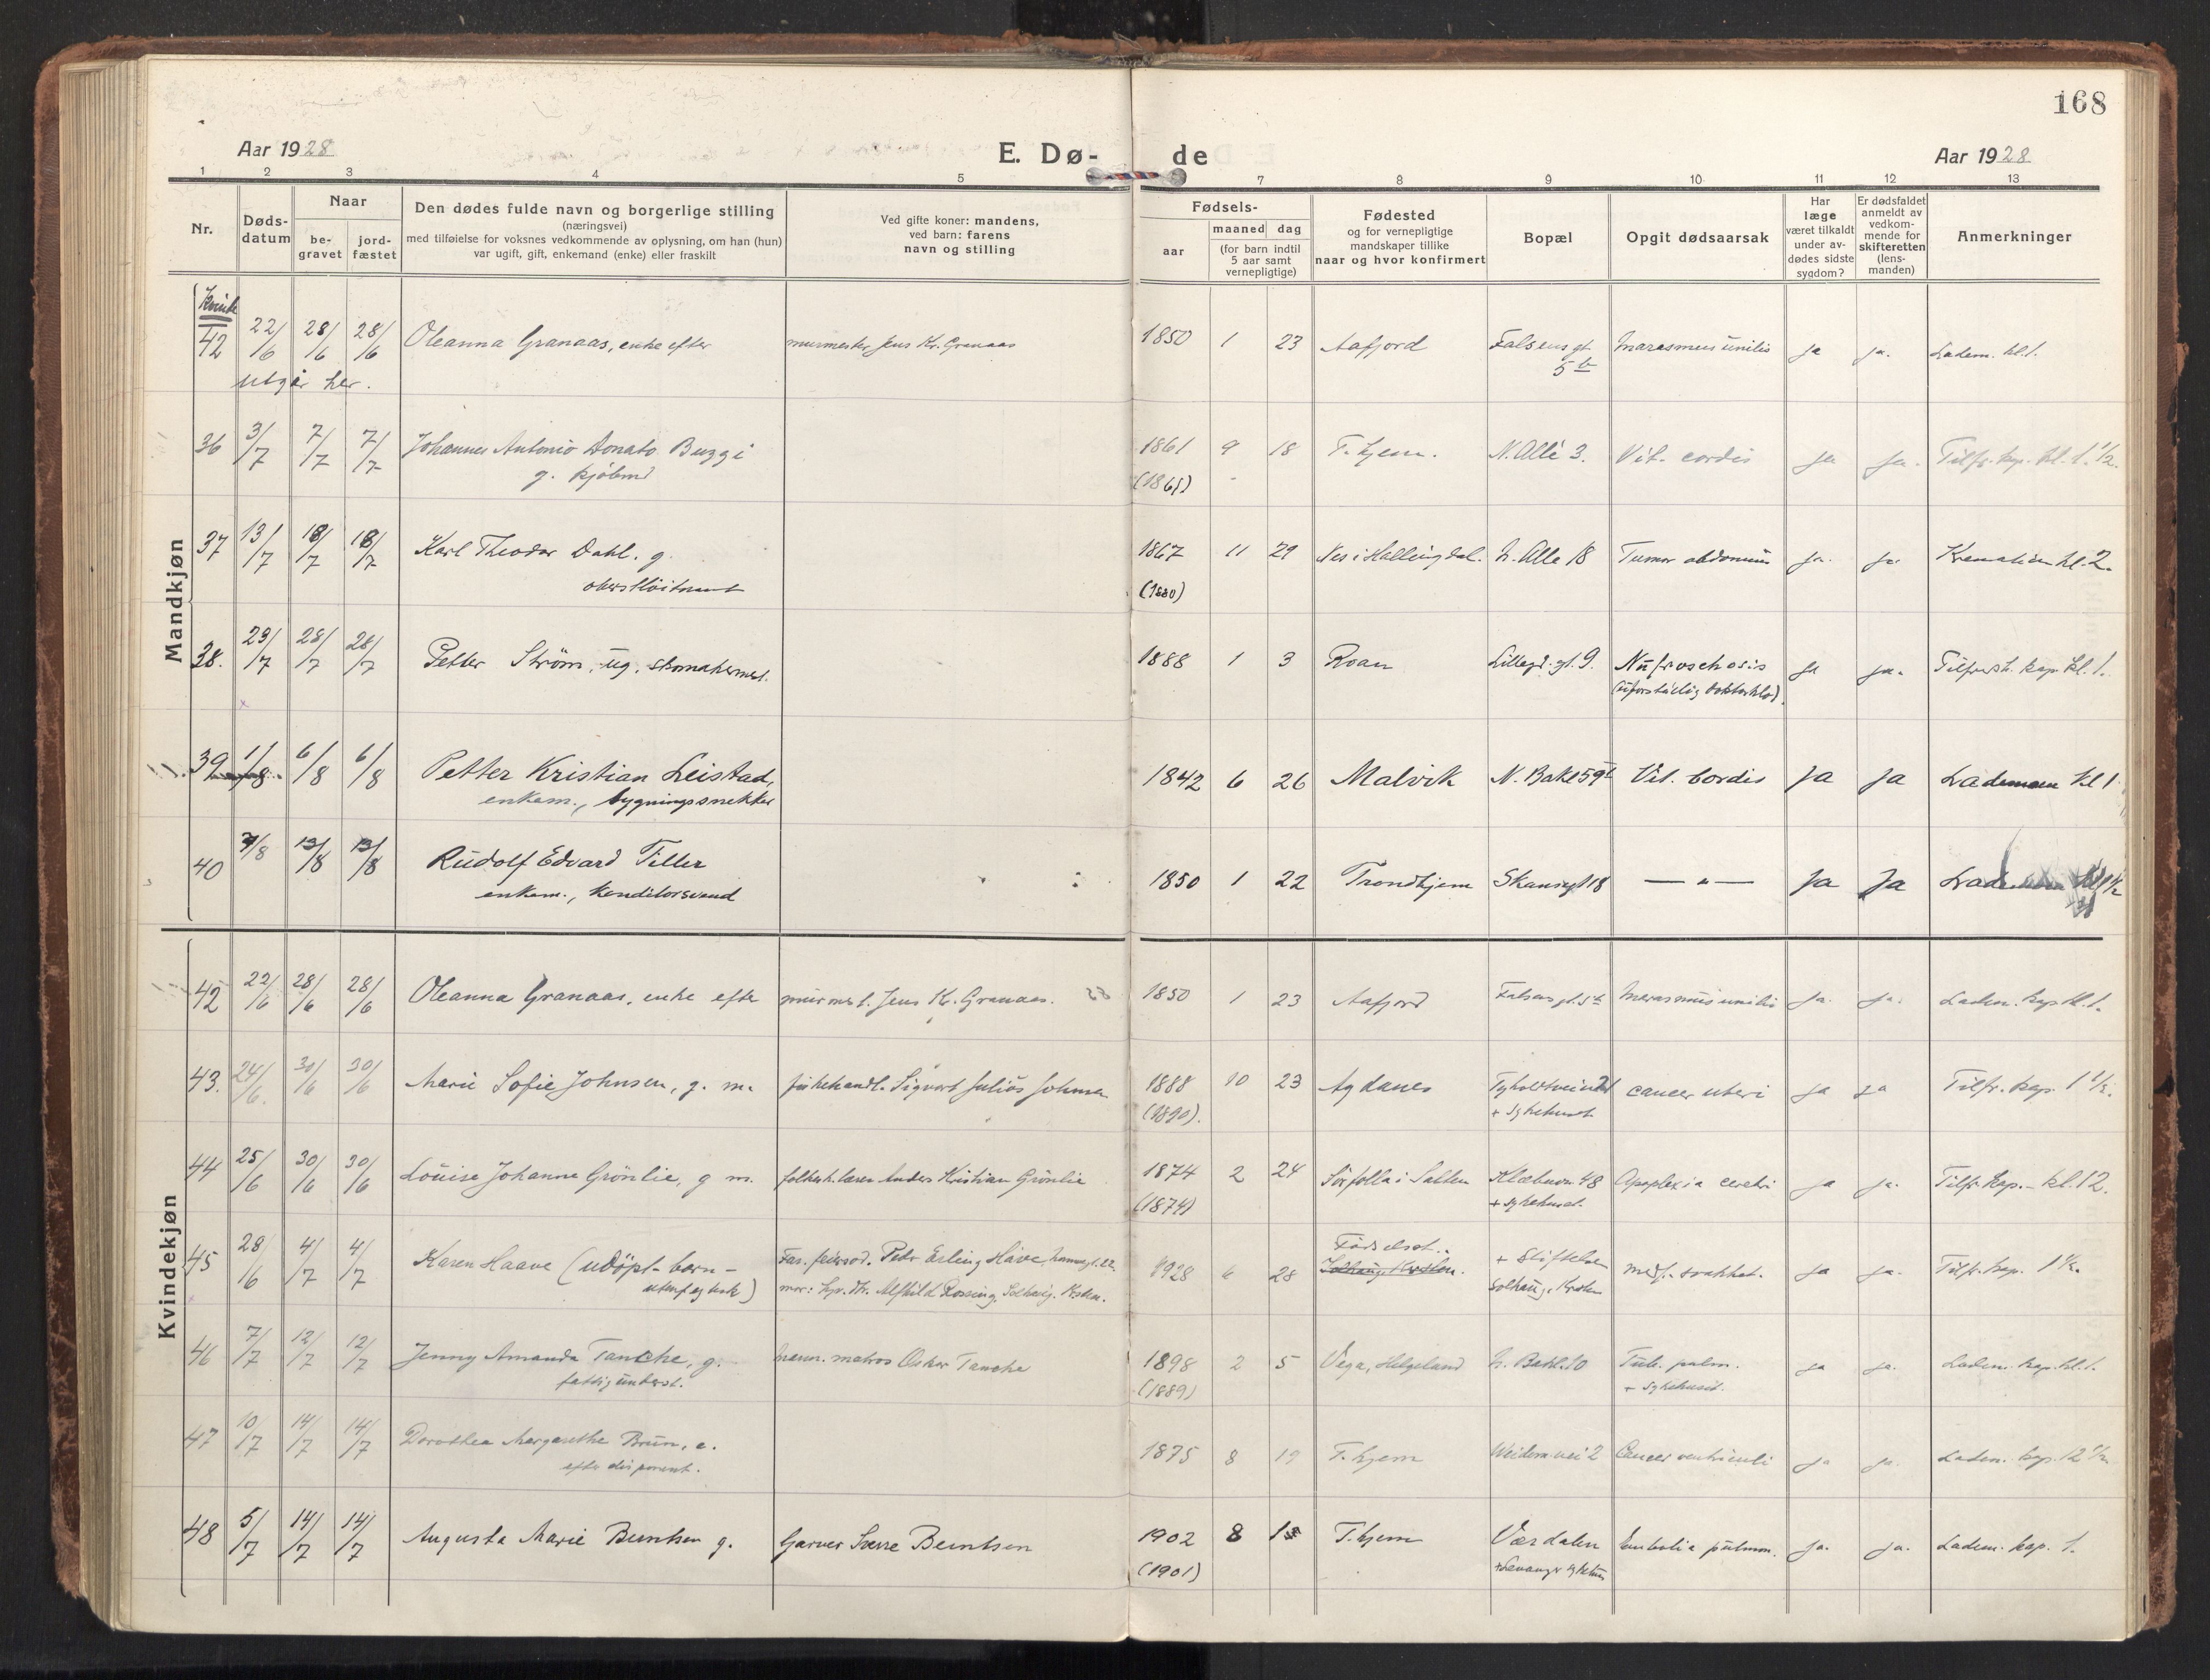 168
Aar 1928 E. Dø- de Aar 1928
1 2 3 4 5 7 8 9 10 11 12 13
Nr.
Døds-
datum
Naar
be-
gravet
jord-
fæstet
Den dødes fulde navn og borgerlige stilling
(næringsvei)
med tilføielse for voksnes vedkommende av oplysning, om han (hun)
var ugift, gift, enkemand (enke) eller fraskilt
Ved gifte koner: mandens,
ved barn: farens
navn og stilling
Fødsels-
aar
maaned dag
(for barn indtil
5 aar samt
vernepligtige)
Fødested
og for vernepligtige
mandskaper tillike
naar og hvor konfirmert
Bopæl
Opgit dødsaarsak
Har
læge
været tilkaldt
under av-
dødes sidste
sygdom?
Er dødsfaldet
anmeldt av
vedkom-
mende for
skifteretten
(lens-
manden)
Anmerkninger
Mandkjøn
42 22/6 28/6 28/6 Oleanna Granaas, enke efter murmester Jens Kr. Granaas 1850 1 23 Aafjord Falsens gt. Marasmus ja ja. Ladem. kl. 1.
5 b
utgår her.
36 3/7 7/7 7/7 Johannes Antonio Donato Buzzi 1861 9 18 T.hjem. N. Allè 3. Vit. cordis ja ja. Tilfr. kap. kl. 1 1/2.
g. kjøbmd (1861)
37 13/7 18/7 18/7 Karl Theodor Dahl. g. 1867 11 29 Nes i Hallingdal. N. Alle 18 Tumor abdominis ja. ja Kremation kl. 2.
oberstløitnant (1880)
38. 23/7 28/7 28/7 Petter Strøm, ug. skomakermest. 1888 1 3 Roan Lillegd. gt. 9. ja ja. Tilfredsh. kap. kl. 1.
39 1/8 6/8 6/8 Petter Kristian Leistad, 1842 6 26 Malvik N. Bakl 59 Vit. Cordis ja ja Lademoen kl 1
enkem., bygningssnekker
40 7/8 13/8 13/8 Rudolf Edvard Tiller 1850 1 22 Trondhjem Skansegt 18 — " — Ja Ja
enkem., Konditorsvend
Kvindekjøn
42 22/6 28/6 28/6 Oleanna Granaas, enke efter murmest. Jens Kr. Granaas. 1850 1 23 Aafjord Falsens gt. 5 b Marasmus ja. ja. Ladem. kap. kl. 1.
43. 24/6. 30/6 30/6 Marie Sofie Johnsen, g. m. fiskehandl. Sigvart Julius Johnsen 1888 10 23 Agdenes cancer uteri ja ja Tilfr. kap. 1 1/2.
(1890). + sykehuset
44 25/6 30/6 30/6 Louise Johanne Grönlie, g m. folkesk.lærer Anders Kristian Grönlie 1874 2 24 Sörfolla i Salten Klæbuv. 48 Apoplexia cerebri ja ja. Tilfr. Kap. - kl. 12.
(1874) + sykehuset.
45 28/6 4/7 4/7 Karen Haave (udöpt barn - Far. Petr Erling Håve, 1928 6 28 Fødselsst. + Stiftelsen ja ja. Tilfr. kap. 1 1/2.
utenf. egtesk) mor: Alfhild Rossing, Solhaug, Kr.sten. Solhaug, Kr.sten
46 7/7 12/7 12/7 Jenny Amanda Tanche, g. matros Oskar Tanche 1898 2 5 Vega, Helgeland N. Bakl. 10 Tub. pulm. ja ja. Ladem. kap. kl. 1.
fattigunderst. (1889) + sykehuset.
47 10/7 14/7 14/7 Dorothea Margarethe Brun, e. 1875 8 19 T.hjem Weidem. vei 2 Cancer ventriculi ja ja. Ladem. kap. 12 1/2
efter disponent.
48 5/7 14/7 14/7 Augusta Marie Berntsen g. Garver Sverre Berntsen 1902 8 T.hjem Værdalen Embolia pulmon. ja. ja. Ladem. kap. 1.
(1901) + Levanger sykehus